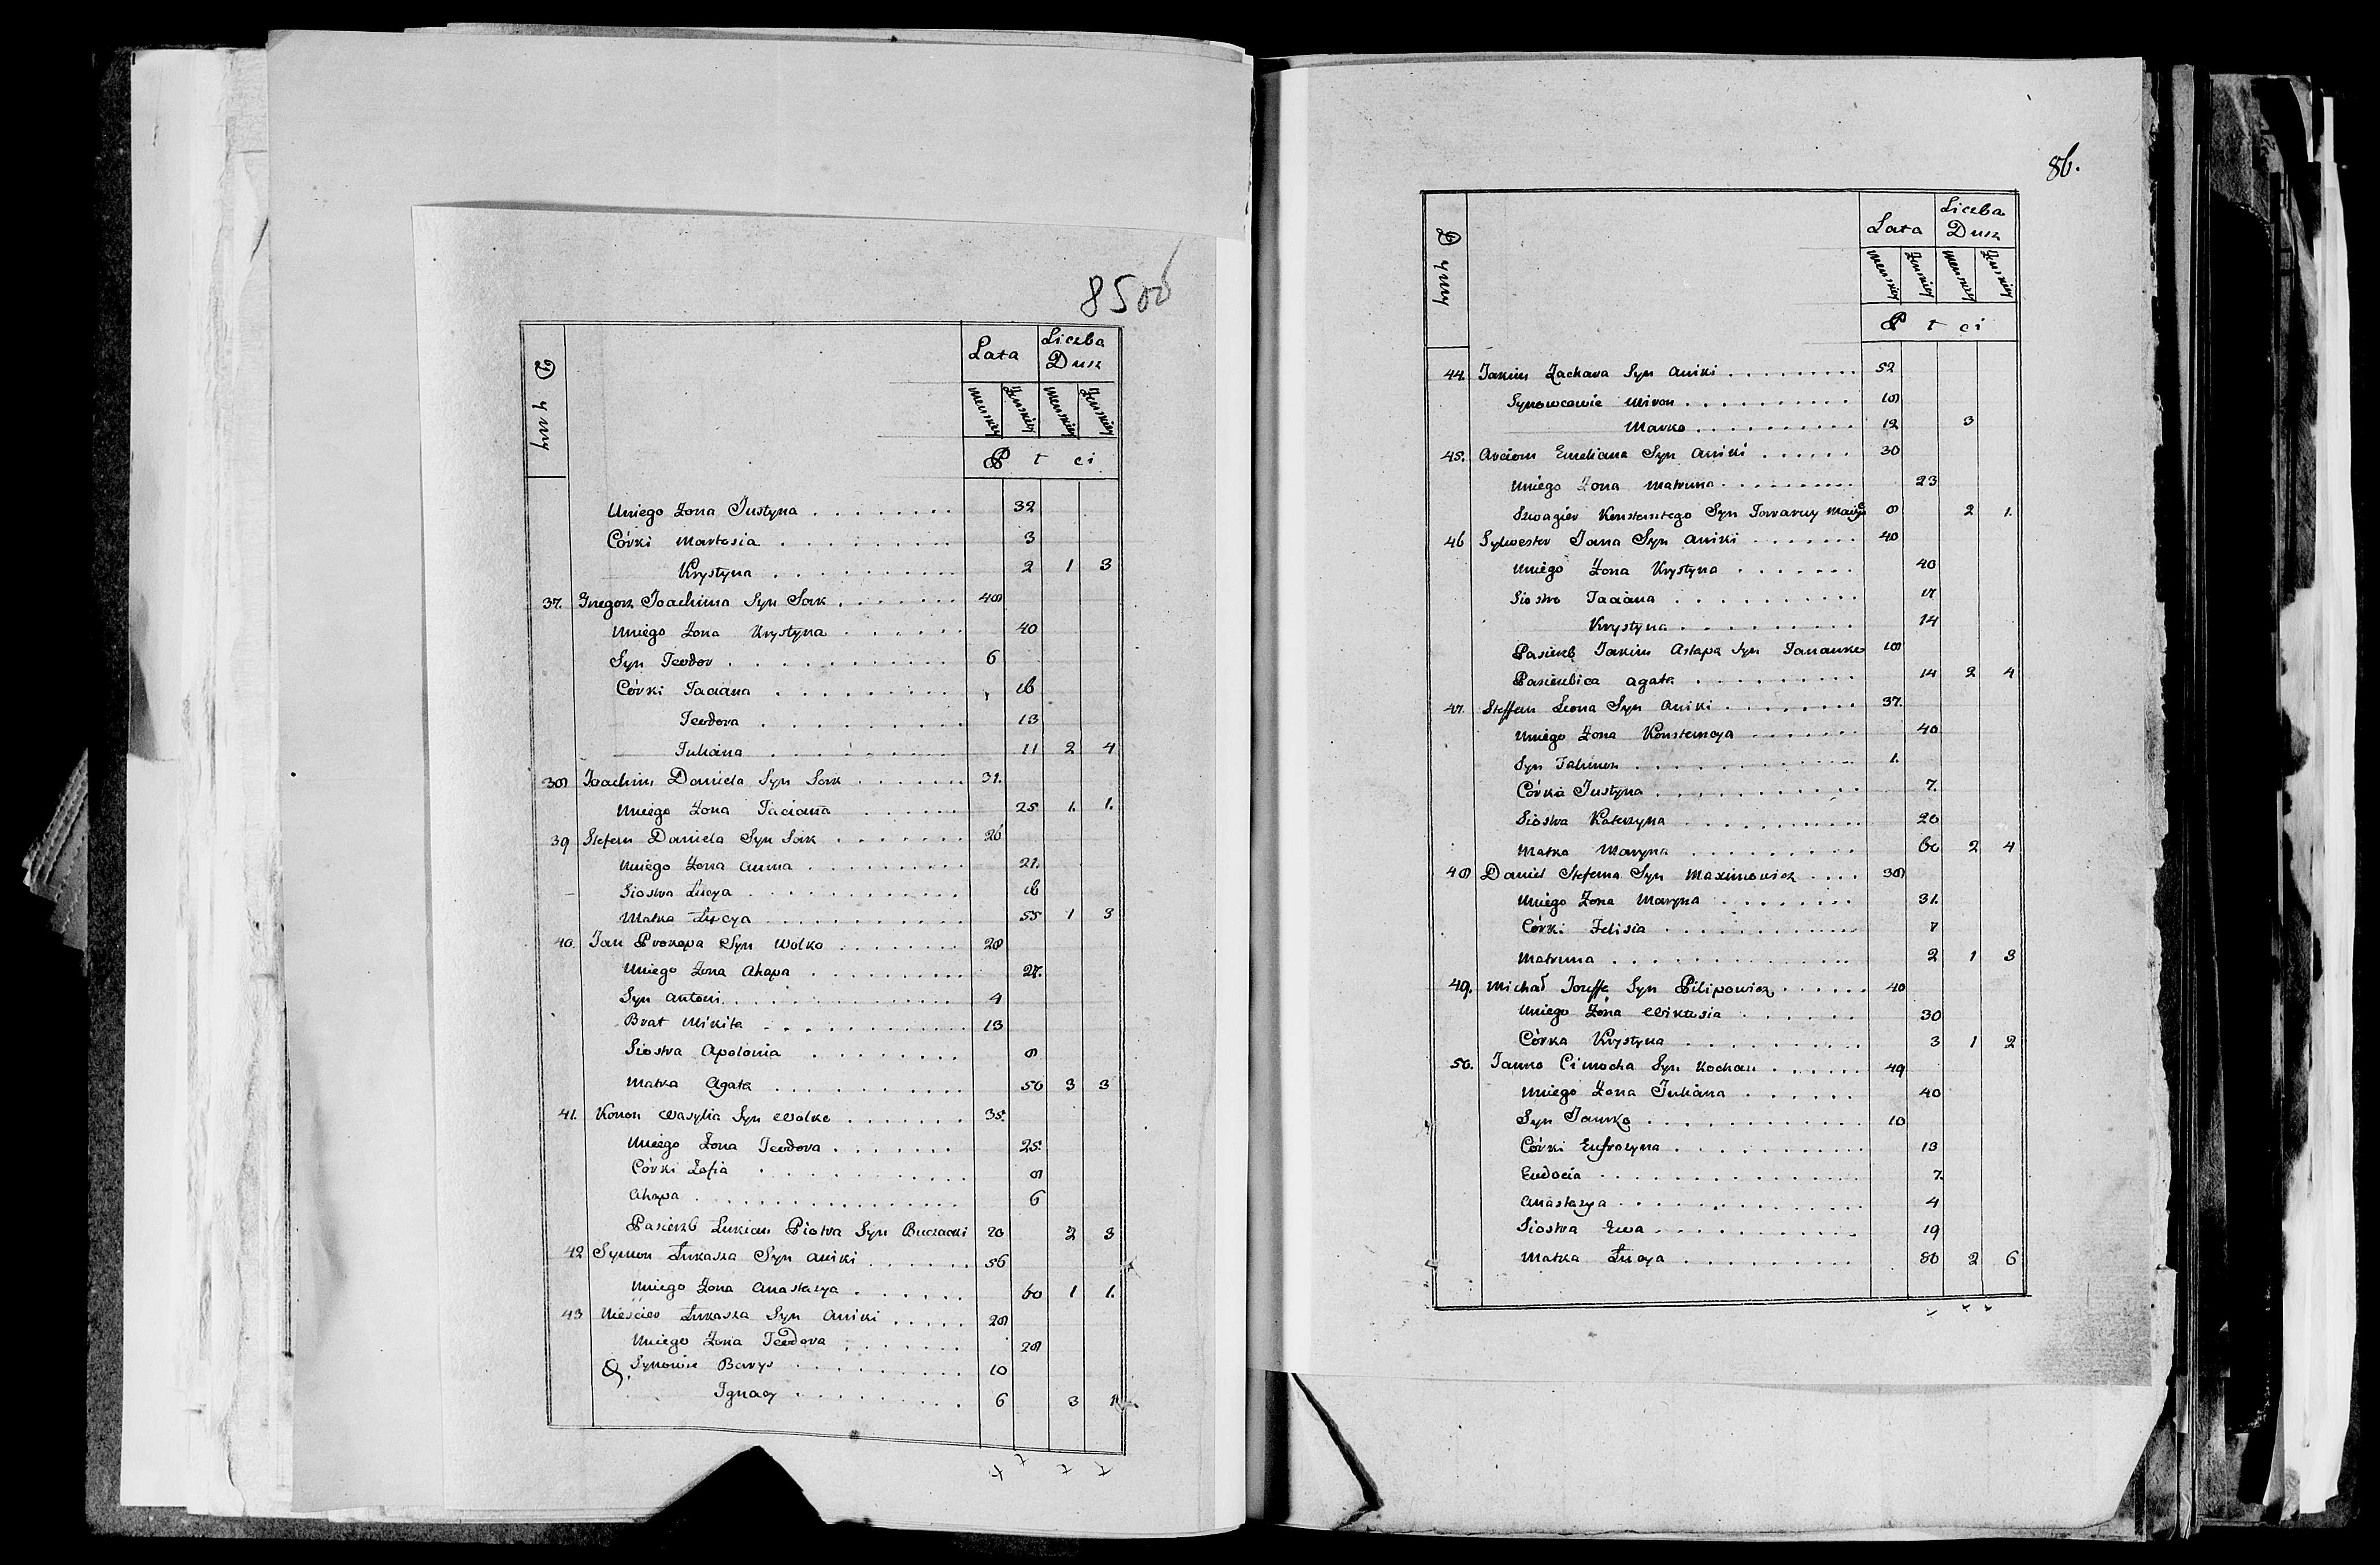 85об
Dymy
Lata
Liczba
Dusz
Męnskiey
Żenskiey
Męnskiey
Żenskiey
P ł ci
Uniego Żona Justyna . . . . . . . . 32
Córki Martosia . . . . . . . . . 3
Krystyna . . . . . . . . . . 2 1 3
37. Gregorz Joachima Syn Sak . . . . . . . 48
Uniego Żona Krystyna . . . . . . 40
Syn Teodor . . . . . . . . . . . 6
Córki Taciana . . . . . . . . . 16
Teodora . . . . . . . . . . 13
Juliana . . . . . . . . . 11 2 4
38 Joachim Daniela Syn Sak . . . . . . 31.
Uniego Żona Taciana . . . . . . 25 1. 1.
39 Stefan Daniela Syn Sak . . . . . . . 26
Uniego Żona Anna . . . . . . . . . 21.
Siostra Łucya . . . . . . . . . . . . 16
Matka Łucya . . . . . . . . . . . 55 1 3
40. Jan Prokopa Syn Wolko . . . . . . . . 28
Uniego Żona Ahapa . . . . . . . . . . 27.
Syn Antoni . . . . . . . . . . . . . 4
Brat Mikita . . . . . . . . . . . . 13
Siostra Apolonia . . . . . . . . 8
Matka Agata . . . . . . . . . . . 50 3 3
41. Konon Wasyla Syn Wolko . . . . . . . 35.
Uniego Żona Teodora . . . . . . . 25.
Córki Zofia . . . . . . . . . . . . 8
Ahapa . . . . . . . . . . . . . . . . 6
Pasierzb Łukian Piotra Syn Buczacki 20 2 3
42 Symon Łukasza Syn Aniki . . . . . . 56
Uniego Żona Anastazya . . . . . . 60 1 1.
43 Łukasza Syn Aniki . . . . . 28
Uniego Żona Teodora . . . . . . . 28
Synowie Borys . . . . . . . . . . 10
Ignacy . . . . . . . . . . 6 3 1
86.
Dymy
Lata
Liczba
Dusz
Męnskiey
Żenskiey
Męnskiey
Żenskiey
P ł ci
44. Jakim Zachara Syn Aniki . . . . . . . . . 52
Synowcowie Miron . . . . . . . . . . 18
Marko . . . . . . . . . . 12 3
45. Arciom Emeliana Syn Aniki . . . . . . 30
Uniego Żona Matruna . . . . . . . . . . 23
Szwagier Konstantego Syn 8 2 1.
46 Sylwester Jana Syn Aniki . . . . . . . 40
Uniego Żona Krystyna . . . . . . . 40
Siostro Taciana . . . . . . . . . . 17
Krystyna . . . . . . . . . . 14
Pasierb Jakim Astapa Syn Jananko 18
Pasierbica Agata . . . . . . . . . 14 2 4
47. Steffan Leona Syn Aniki . . . . . . . . 37.
Uniego Żona Konstancya . . . . . . . 40
Syn . . . . . . . . . . . . 1.
Córka Justyna . . . . . . . . . . . 7.
Siostra Katerzyna . . . . . . . . . . 20
Matka Maryna . . . . . . . . . 60 2 4
48 Daniel Stefana Syn Maximowicz . . . . 38
Uniego Żona Maryna . . . . . . . . 31.
Córki Felisia . . . . . . . . . . . . 7
Matruna . . . . . . . . . . . . . . . 2 1 3
49. Michał Jozeffa Syn Pilipowicz . . . . . . 40
Uniego Żona Wiktosia . . . . . . 30
Córka Krystyna . . . . . . . . . . 3 1 2
50. Janko Cimocha Syn Kochan . . . . . . 49
Uniego Żona Juliana . . . . . . 40
Syn Janko . . . . . . . . . . . . 10
Córki Eufrozyna . . . . . . . . . . 13
Eudocia . . . . . . . . . . . . . . . 7.
Anastazya . . . . . . . . . . . . . . 4
Siostra Ewa . . . . . . . . . . . . 19
Matka Łucya . . . . . . . . . . 80 2 6